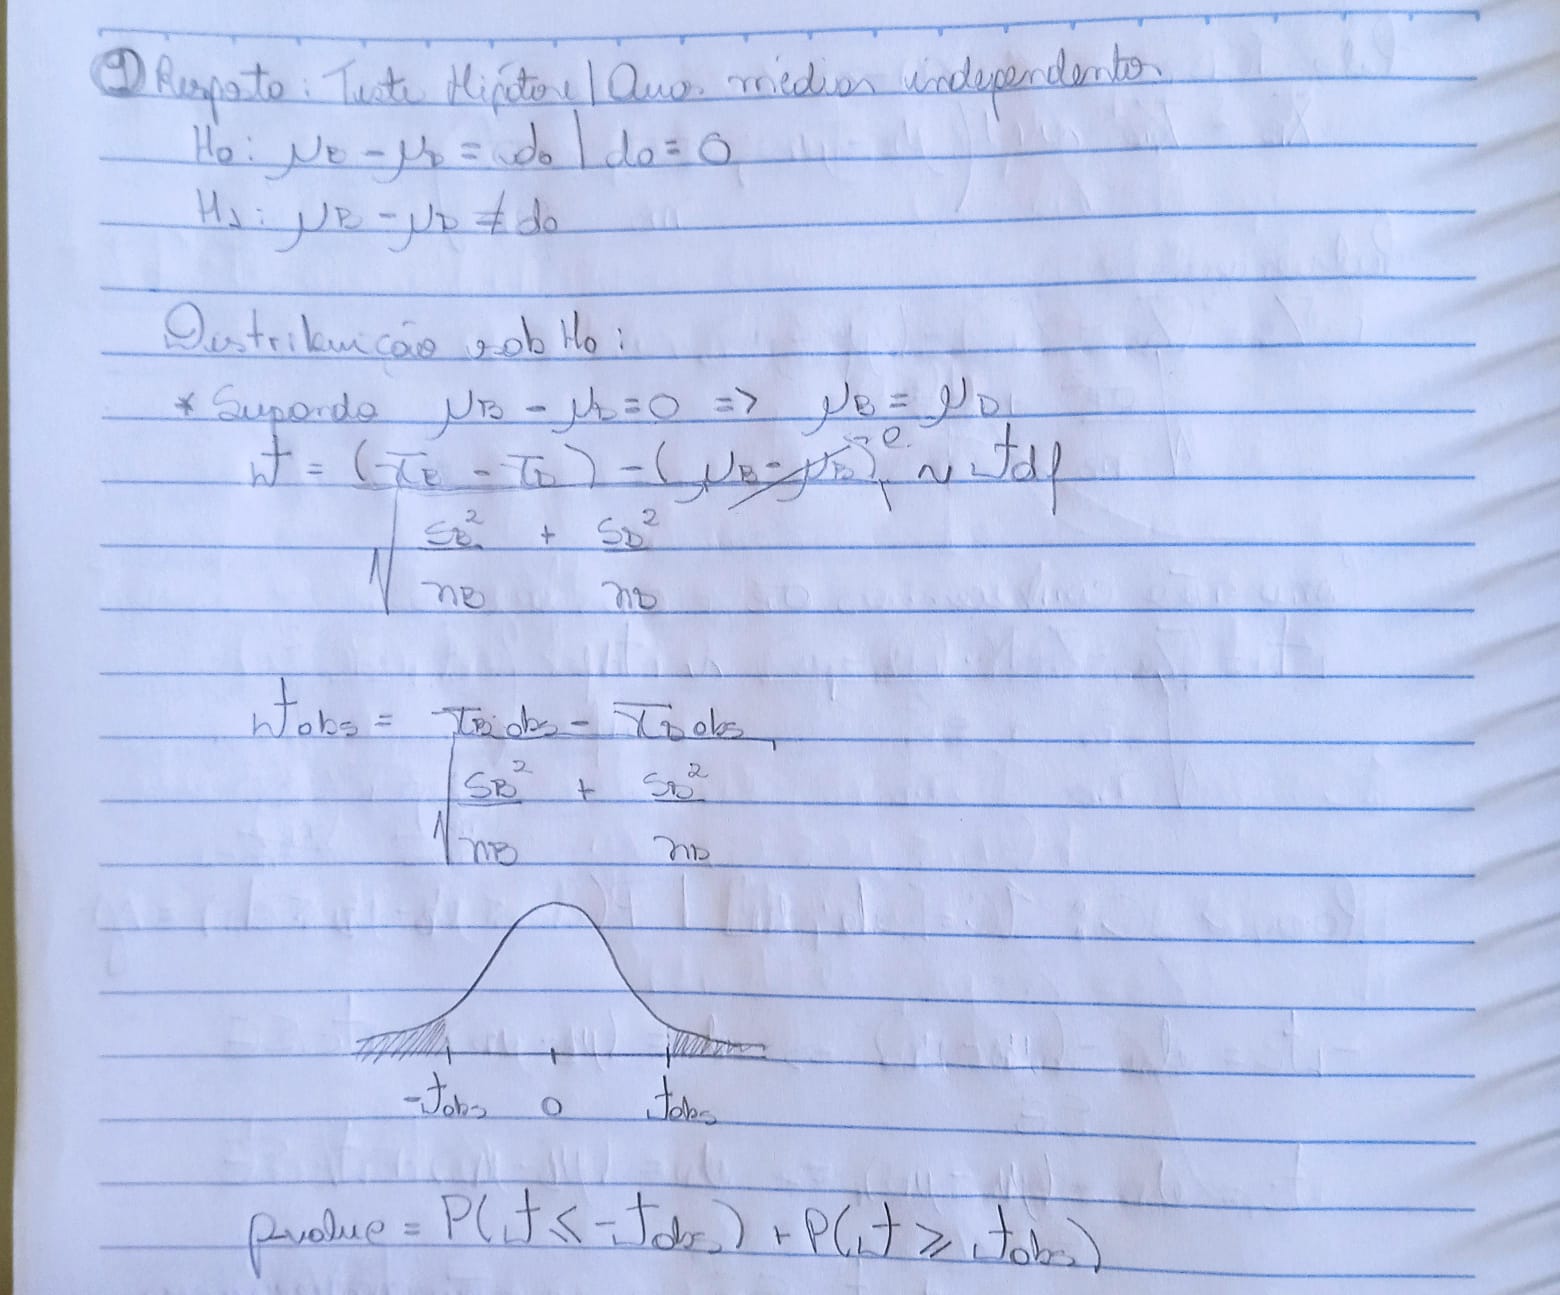 ① Resposta: Teste Hipótese | Duas médias independentes
H0: μB - μD = d0 | d0 = 0
H1: μB - μD ≠ d0
Distribuição sob H0:
* Supondo μB - μD = 0 => μB = μD
t = (x̄B - x̄D) - (μB - μD)→0 ~ tdf
√ SB² + SD²
nB nD
tobs = x̄B obs - x̄D obs
√ SB² + SD²
nB nD
-tobs 0 tobs
pvalue = P(t ≤ -tobs) + P(t ≥ tobs)